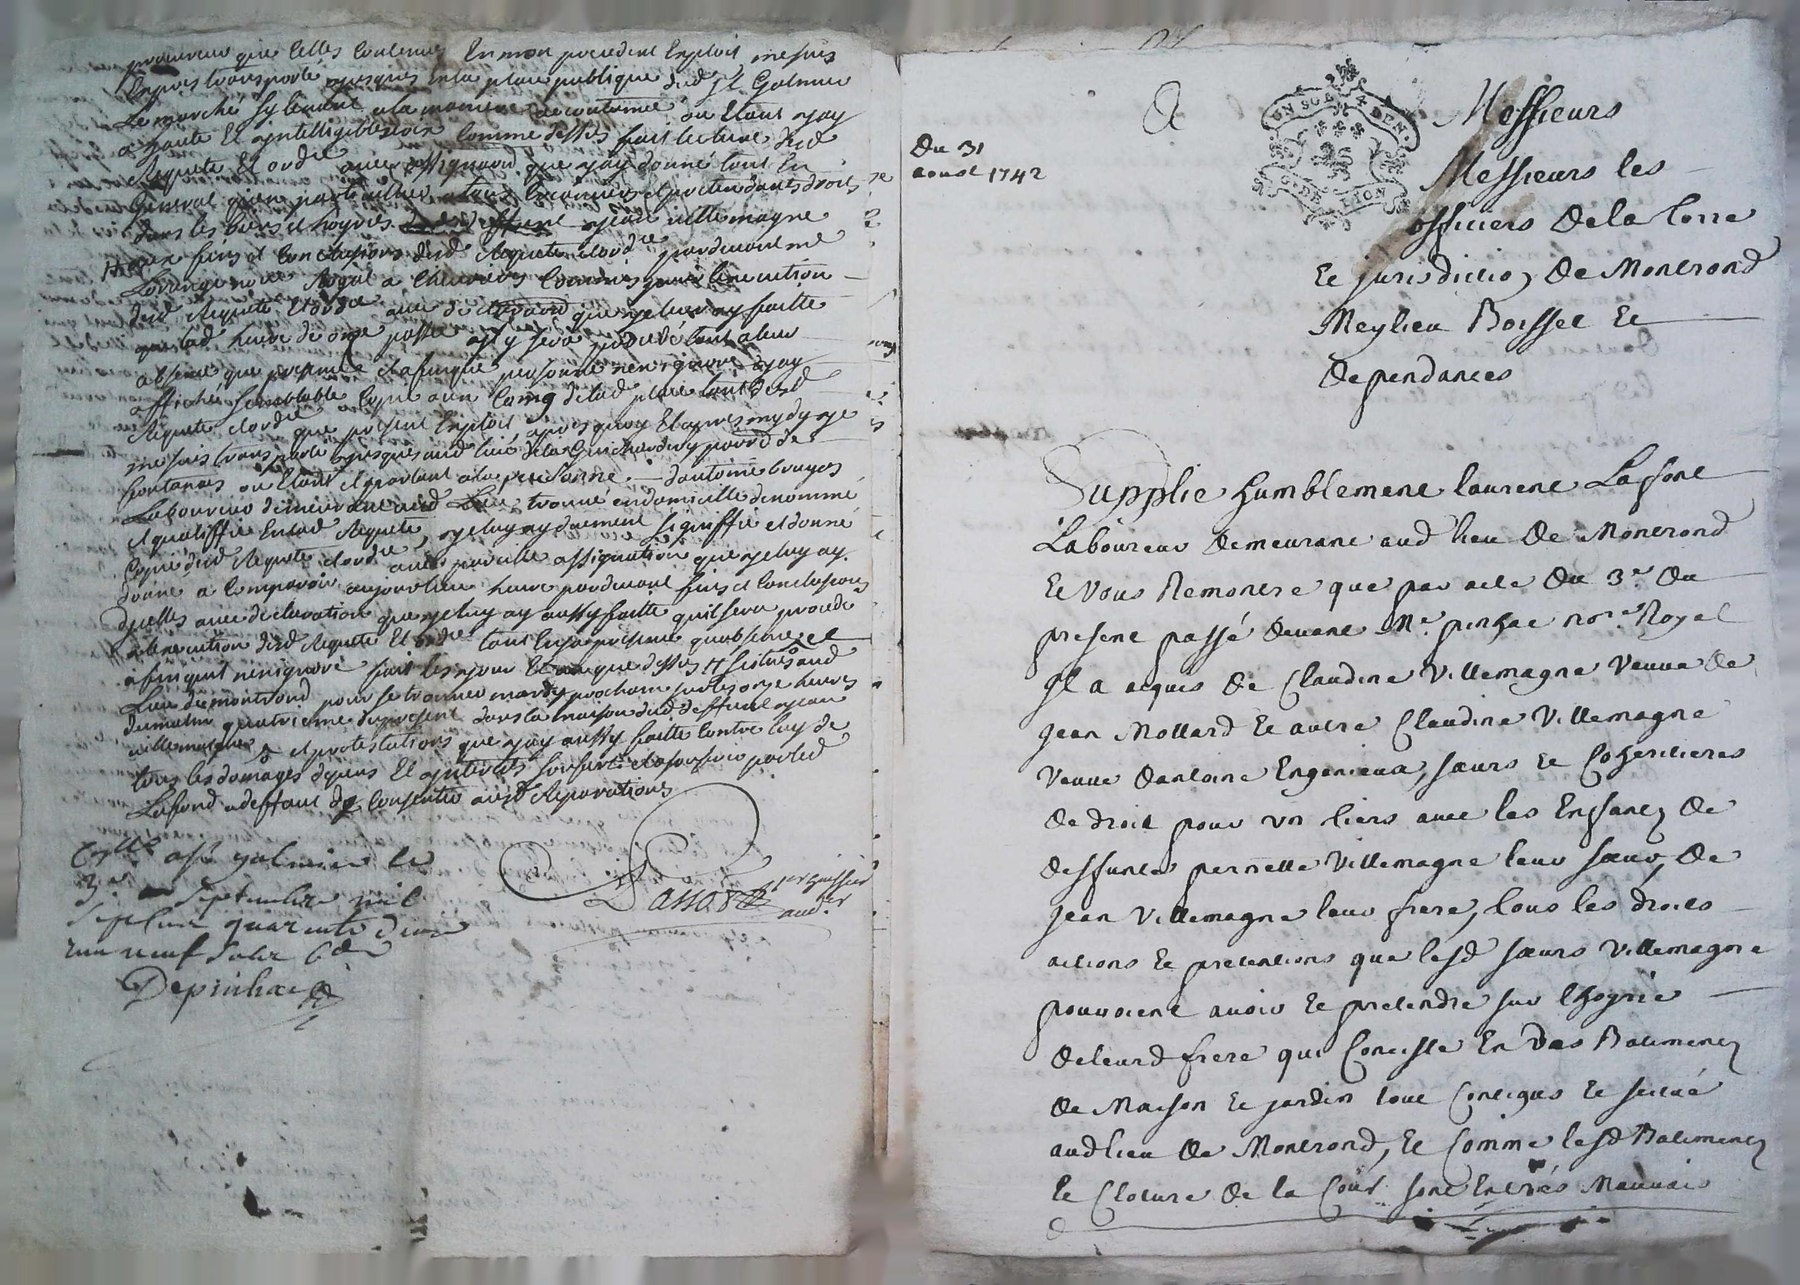 procureur que celles contenues en mon precedent exploit me suis
apres transporté jusques en la place publique dud St Galmier
Le marché sy tenant a la maniere accoutumée ou etant jay
a haute et intelligible voix comme dessus fait lecture dud
Requete et ordce avec assignaõn que jay donné tant en
general qu'en particulier a tous creanciers et pretendants droits
dans les biens et hoyries jean villemagne
aux fins et conclusions dud Requete et ordce pardevant me
royal a commissaire execution
dud Requete et ordce avec declaration que je leur ay faitte
que lad heure de onze passée il y sera procédé tant a leur
absence que presence et afin que personne nen ignore jay
affiché semblable copie a un coing de lad place tant dud
Requete et ordce que present exploit apres quoy et apres mydy je
me suis transporté jusques aud lieu
fontanes ou etant et parlant a la personne dantoine bruyas
Laboureur demeurant aud Lieu trouvé en domicille denommé
et qualiffié en lad Requete, je luy ay duement signiffié et donné
copie dud Requete et ordce avec pareille assignation que je luy ay
donné a comparoir aujourdhuy heure pardevant fins et conclusions
dycelles avec declaration que je luy ay aussy faitte quil sera procédé
a lexecution dud Requete et ordce tant en sa presence quabsence et
afin quil nen ignore fait les jour et an que dessus
Lieu de montrond pour se trouver mardy prochain sur les onze heures
du matin quatrieme du present dans la maison dud deffunt jean
villemagne et protestations que jay aussy faitte contre luy de
tous les domages depens et interets soufferts et a souffrir par led
Lafond a deffaut de consentir auxd Reparations
Collé a St galmier le
3e septembre mil
sept cent quarante deux
reçu neuf sols 6d
Depinhac
Passot
1er huissier
aud.
Du 31
aoust 1742
A
EN SOL 4 DEN
G. DE LION
Messieurs
Messieurs les
officiers de la Terre
et jurisdiction de Montrond
Meylieu Boisset et
dependances
Supplie humblement laurent Lafont
Laboureur demeurant aud lieu de Montrond
Et vous Remontre que par acte du 3e du
present passé devant Me. pinhac nore. Royal
Il a acquis de Claudine Villemagne veuve de
jean Mollard et autre Claudine Villemagne
veuve dantoine Engenieux, sœurs et Coheritieres
de droit pour un tiers avec les Enfants de
deffunte pernette Villemagne leur sœur, de
jean Villemagne leur frere, tous les droits
actions et pretentions que lesd sœurs Villemagne
pouvoient avoir et pretendre sur lhoyrie
de leurd frere qui Consiste En des Batiments
de Maison et jardin tout Contigus et scitué
aud lieu de Montrond, et Comme lesd Batiments
et Cloture de la Cour sont En très Mauvais